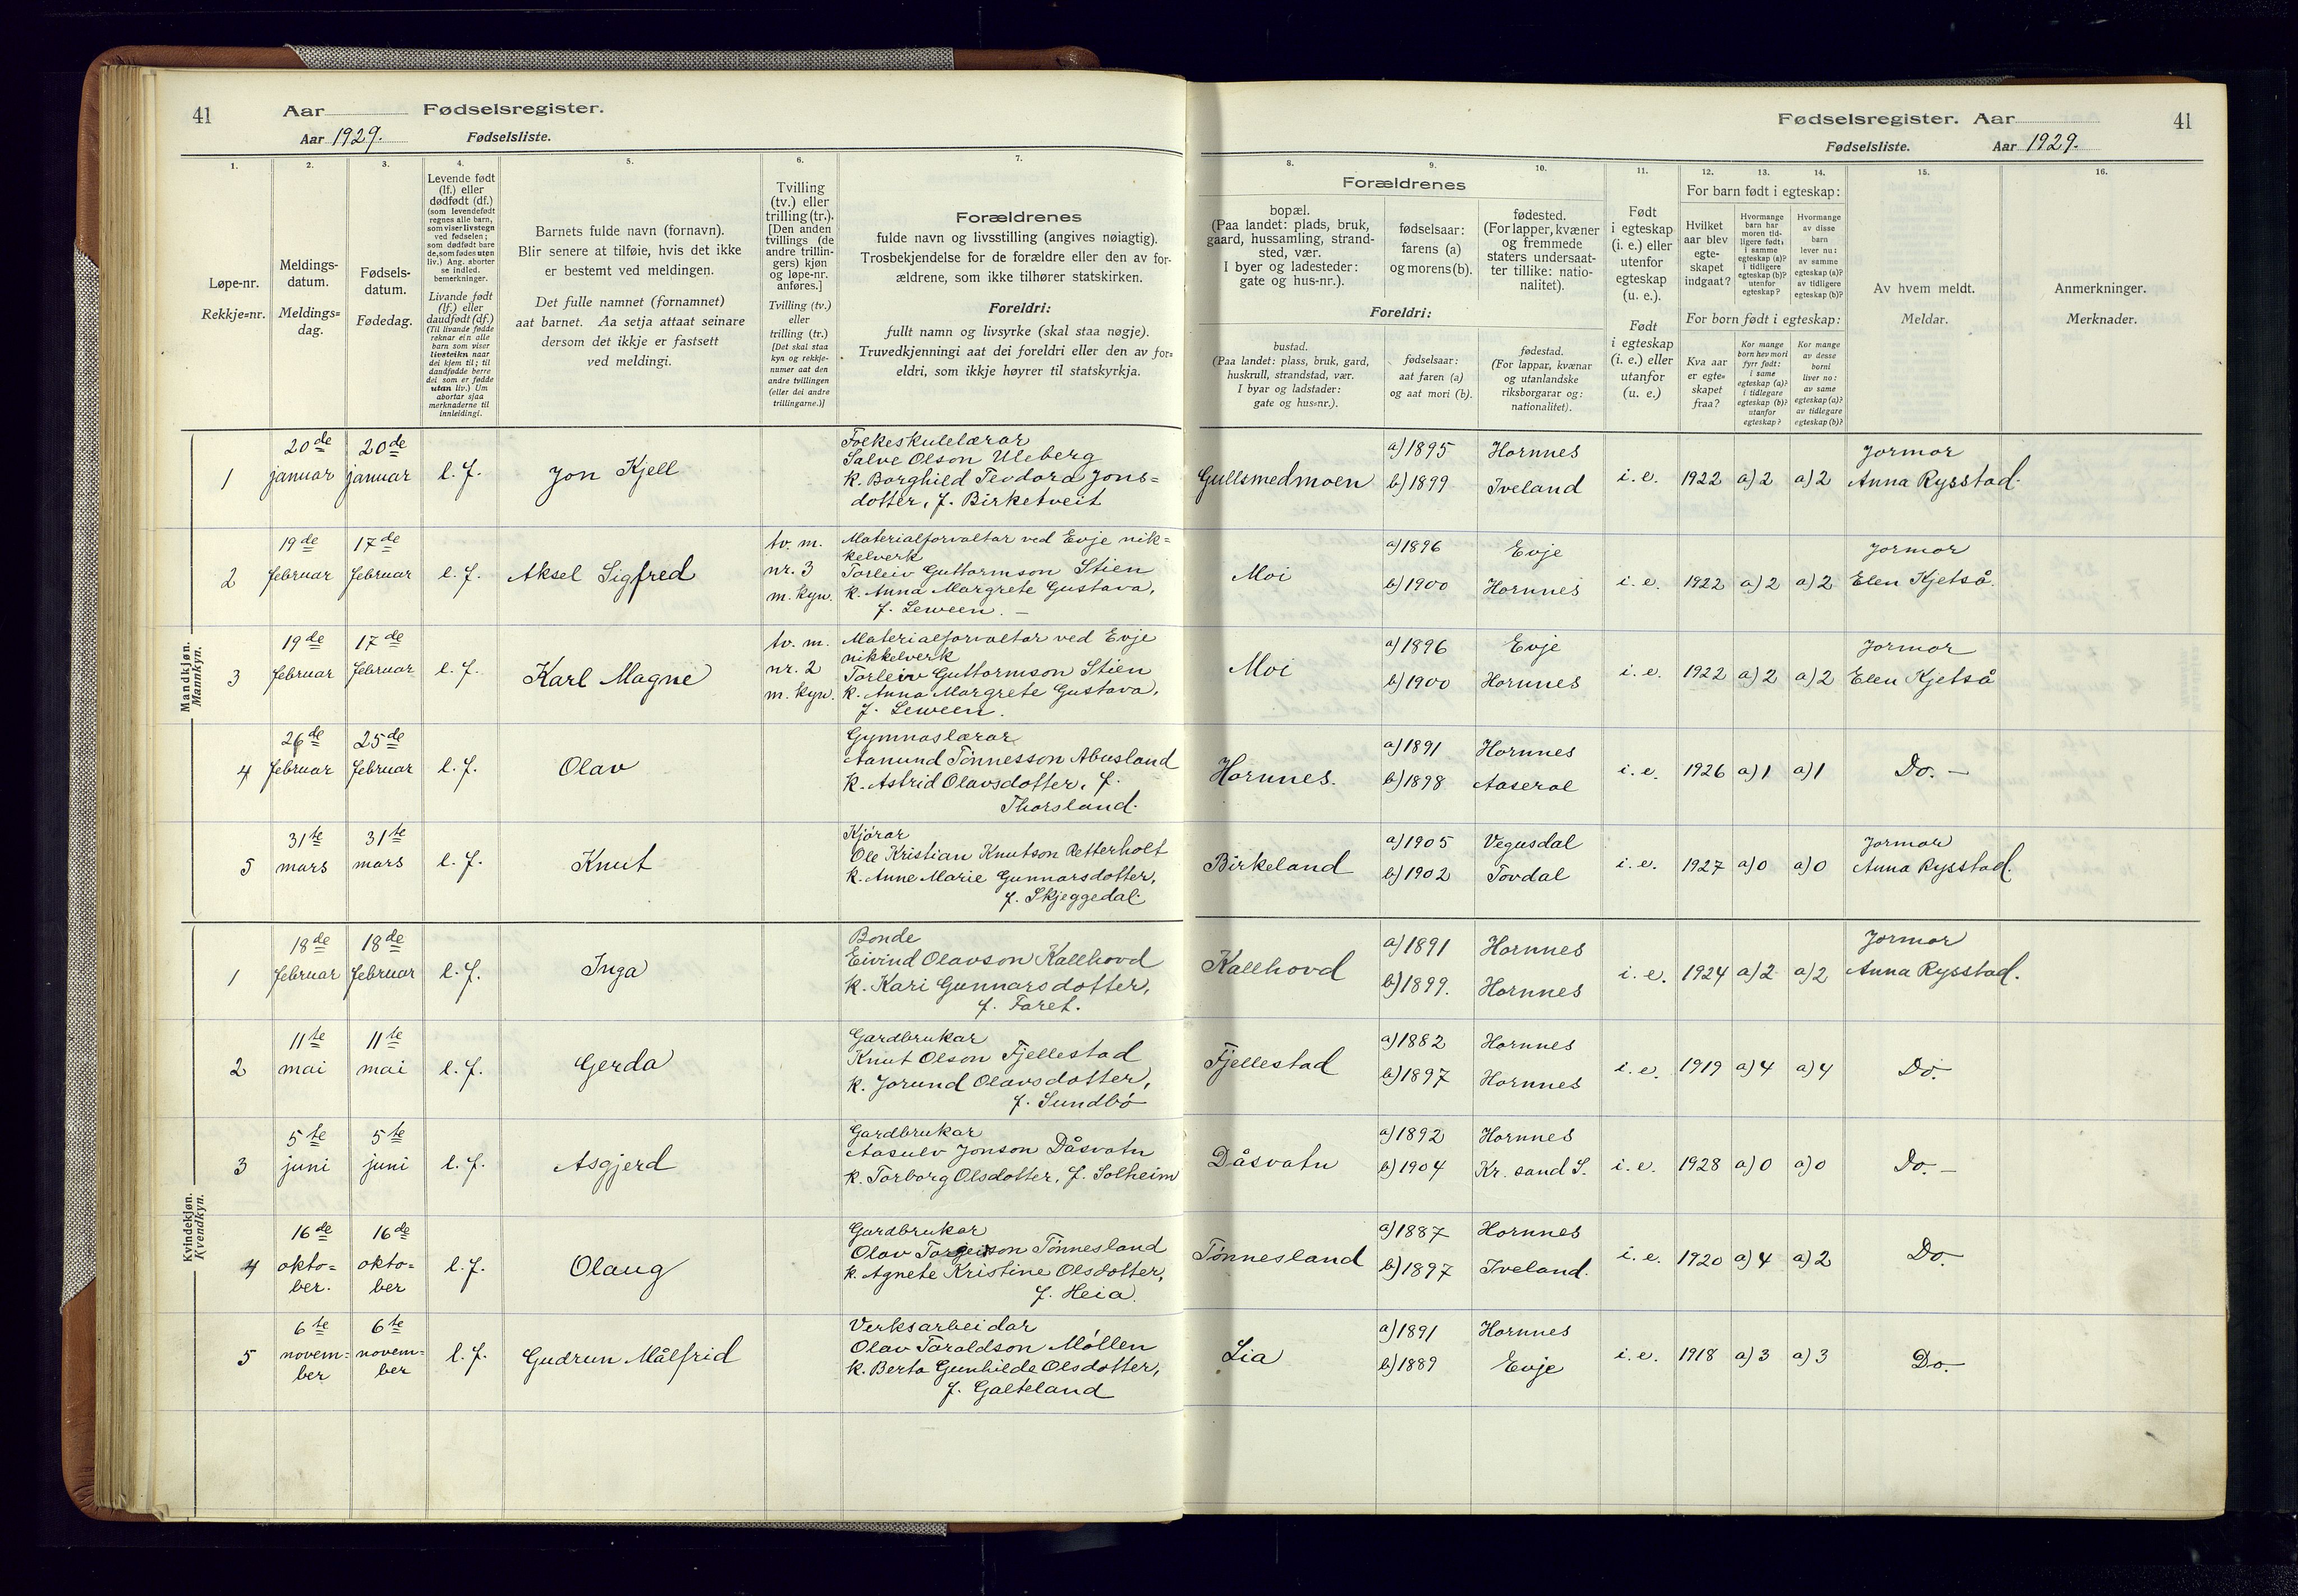 41
Aar Fødselsregister.
Aar 1929. Fødselsliste.
Fødselsregister. Aar
41
Fødselsliste. Aar 1929.
1.
Løpe-nr.
Rekkje=nr.
2.
Meldings-
datum.
Meldings=
dag.
3.
Fødsels-
datum.
Fødedag.
4.
Levende født
(lf.) eller
dødfødt (df.)
(som levendefødt
regnes alle barn,
som viser livstegn
ved fødselen;
som dødfødt bare
de, som fødes uten
liv.) Ang. aborter
se indled.
bemerkninger.
Livande født
(lf.) eller
daudfødt (df.)
(Til livande fødde
reknar ein alle
barn som viser
livsteikn naar
dei kjem til; til
daudfødde berre
dei som er fødde
utan liv.) Um
abortar sjaa
merknaderne til
innleidingi.
5.
Barnets fulde navn (fornavn).
Blir senere at tilføie, hvis det ikke
er bestemt ved meldingen.
Det fulle namnet (fornamnet)
aat barnet. Aa setja attaat seinare
dersom det ikkje er fastsett
ved meldingi.
6.
Tvilling
(tv.) eller
trilling (tr.).
[Den anden
tvillings (de
andre trillin-
gers) kjøn
og løpe-nr.
anføres.]
Tvilling (tv.)
eller
trilling (tr.)
[Det skal staa
kyn og rekkje-
numer aat den
andre tvillingen
(eller dei andre
trillingarne.)]
7.
Forældrenes
fulde navn og livsstilling (angives nøiagtig).
Trosbekjendelse for de forældre eller den av for-
ældrene, som ikke tilhører statskirken.
Foreldri:
fullt namn og livsyrke (skal staa nøgje).
Truvedkjenningi aat dei foreldri eller den av for=
eldri, som ikkje høyrer til statskyrkja.
Forældrenes
8.
bopæl.
(Paa landet: plads, bruk,
gaard, hussamling, strand-
sted, vær.
I byer og ladesteder:
gate og hus-nr.).
9.
fødselsaar:
farens (a)
og morens (b).
10.
fødested.
(For lapper, kvæner
og fremmede
staters undersaat-
ter tillike: natio-
nalitet).
Foreldri:
bustad.
(Paa landet: plass, bruk, gard,
huskrull, strandstad, vær.
I byar og ladstader:
gate og hus=nr.).
fødselsaar:
aat faren (a)
og aat mori (b).
fødestad.
(For lappar, kvænar
og utanlandske
riksborgarar og:
nationalitet).
11.
Født
i egteskap
(i. e.) eller
utenfor
egteskap
(u. e.).
Født
i egteskap
(i. e.) eller
utanfor
(u. e.)
12. 13. 14.
For barn født i egteskap:
Hvilket
aar blev
egte-
skapet
indgaat?
Hvormange
barn har
moren tid-
ligere født:
i samme
egteskap (a)?
i tidligere
egteskap (b)?
utenfor
egteskap?
Hvormange
av disse
barn
lever nu:
av samme
egteskap (a)?
av tidligere
egteskap (b)?
For born født i egteskap:
Kva aar
er egte=
skapet
fraa?
Kor mange
born hev mori
fyrr født:
i same
egteskap (a)?
i tidlegare
egteskap (b)?
utanfor
egteskap?
Kor mange
av desse
borni
liver no:
av same
egteskap (a)?
av tidlegare
egteskap (b)?
15.
Av hvem meldt.
Meldar.
16.
Anmerkninger.
Merknader.
Mandkjøn.
Mannkyn.
1 20de januar 20de januar l. f. Jon Kjell
Folkeskulelærar
Salve Olson Uleberg
k. Borghild Teodora Jons=
dotter, f. Birketveit
Gullsmedmoen a) 1895 Hornnes b) 1899 Iveland i. e. 1922 a) 2 a) 2 Jormor Anna Rysstad.
2 19de februar 17de februar l. f. Aksel Sigfred tv. m. nr. 3 m. kyn.
Materialforvaltar ved Evje nik=
kelverk
Torleiv Guttormson Stien
k. Anna Margrete Gustava,
f. Leween. —
Moi a) 1896 Evje b) 1900 Hornnes i. e. 1922 a) 2 a) 2 Jormor Elen Kjetså.
3 19de februar 17de februar l. f. Karl Magne tv. m. nr. 2 m. kyn.
Materialforvaltar ved Evje
nikkelverk
Torleiv Guttormson Stien
k. Anna Margrete Gustava,
f. Leween.
Moi a) 1896 Evje b) 1900 Hornnes i. e. 1922 a) 2 a) 2 Jormor Elen Kjetså
4 26de februar 25de februar l. f. Olav
Gymnaslærar
Aanund Tønnesson Abusland
k. Astrid Olavsdotter, f.
Thorsland.
Hornnes. a) 1891 Hornnes b) 1898 Aaseral i. e. 1926 a) 1 a) 1 Do. —
5 31te mars 31te mars l. f. Knut
Kjørar
Ole Kristian Knutson Retterholt
k. Anne Marie Gunnarsdotter,
f. Skjeggedal.
Birkeland a) 1905 Vegusdal b) 1902 Tovdal i. e. 1927 a) 0 a) 0 Jormor Anna Rysstad.
Kvindekjøn.
Kvendkyn.
1 18de februar 18de februar l. f. Inga
Bonde
Eivind Olavson Kallhovd
k. Kari Gunnarsdotter,
f. Faret.
Kallhovd a) 1891 Hornnes b) 1899. Hornnes i. e. 1924 a) 2 a) 2 Jormor Anna Rysstad.
2 11te mai 11te mai l. f. Gerda
Gardbrukar
Knut Olson Fjellestad
k. Jorund Olavsdotter,
f. Sundbø
Fjellestad a) 1882 Hornnes b) 1897 Hornnes i. e. 1919 a) 4 a) 4 Do.
3 5te juni 5te juni l. f. Asgjerd
Gardbrukar
Aasulv Jonson Dåsvatn
k. Torborg Olsdotter, f. Solheim
Dåsvatn a) 1892 Hornnes b) 1904 Kr. sand S. i. e. 1928 a) 0 a) 0 Do. —
4 16de okto=ber. 16de okto=ber l. f. Olaug
Gardbrukar
Olav Torgeirson Tønnesland
k. Agnete Kristine Olsdotter,
f. Heia.
Tønnesland a) 1887 Hornnes b) 1897 Iveland. i. e. 1920 a) 4 a) 2 Do.
5 6te novem=ber 6te novem=ber l. f. Gudrun Målfrid
Verksarbeidar
Olav Taraldson Møllen
k. Berta Gunhilde Olsdotter,
f. Galteland
Lia a) 1891 Hornnes b) 1889 Evje i. e. 1918 a) 3 a) 3 Do.